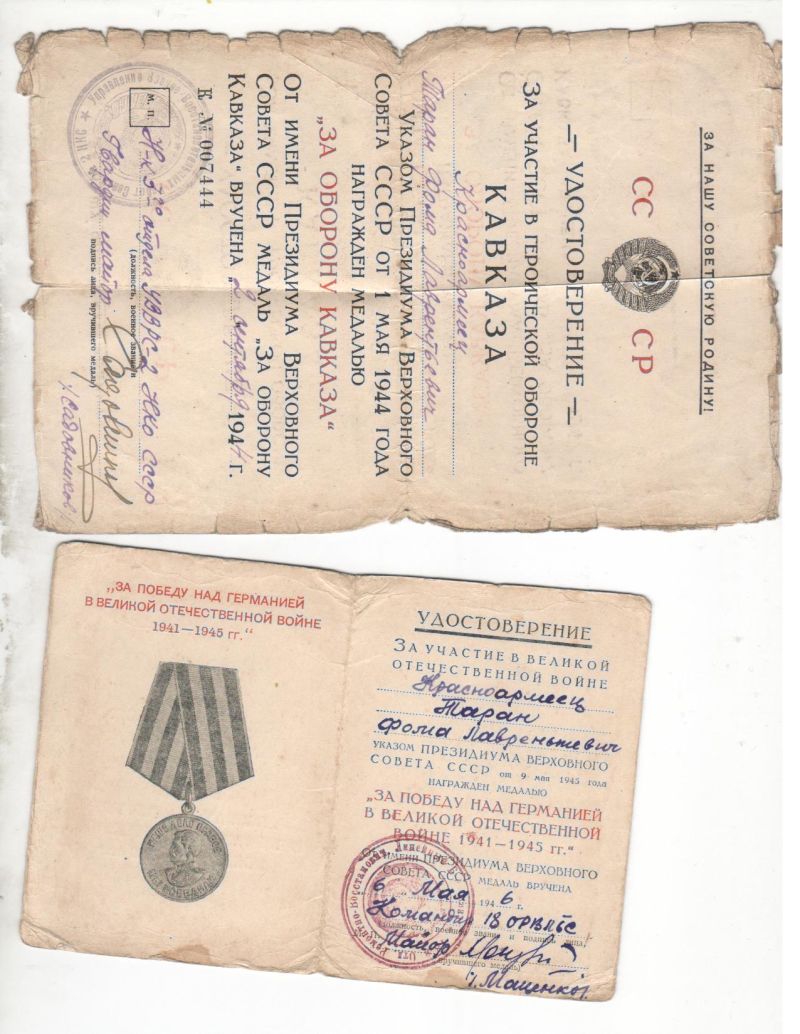 ЗА НАШУ СОВЕТСКУЮ РОДИНУ!
СС СР
— УДОСТОВЕРЕНИЕ —
ЗА УЧАСТИЕ В ГЕРОИЧЕСКОЙ ОБОРОНЕ
КАВКАЗА
Красноармеец
Таран Фома Лаврентьевич
УКАЗОМ ПРЕЗИДИУМА ВЕРХОВНОГО
СОВЕТА СССР ОТ 1 МАЯ 1944 ГОДА
НАГРАЖДЕН МЕДАЛЬЮ
„ЗА ОБОРОНУ КАВКАЗА“
ОТ ИМЕНИ ПРЕЗИДИУМА ВЕРХОВНОГО
СОВЕТА СССР МЕДАЛЬ „ЗА ОБОРОНУ
КАВКАЗА“ ВРУЧЕНА „2 сентября 1944 г.
К №007444
М. П.
Н-к 5го отдела УВВРС-2 НКО СССР
(должность, военное звание и
Гвардии майор
подпись лица, вручившего медаль)
/Садовников/
„ЗА ПОБЕДУ НАД ГЕРМАНИЕЙ
В ВЕЛИКОЙ ОТЕЧЕСТВЕННОЙ ВОЙНЕ
1941—1945 гг.“
НАШЕ ДЕЛО ПРАВОЕ
МЫ ПОБЕДИЛИ
УДОСТОВЕРЕНИЕ
ЗА УЧАСТИЕ В ВЕЛИКОЙ
ОТЕЧЕСТВЕННОЙ ВОЙНЕ
Красноармеец
Таран
Фома Лаврентьевич
УКАЗОМ ПРЕЗИДИУМА ВЕРХОВНОГО
СОВЕТА СССР от 9 мая 1945 года
НАГРАЖДЕН МЕДАЛЬЮ
„ЗА ПОБЕДУ НАД ГЕРМАНИЕЙ
В ВЕЛИКОЙ ОТЕЧЕСТВЕННОЙ
ВОЙНЕ 1941—1945 гг.“
ОТ ИМЕНИ ПРЕЗИДИУМА ВЕРХОВНОГО
СОВЕТА СССР МЕДАЛЬ ВРУЧЕНА
6 Мая 1946 г.
Командир 18 ОРВЛБС
(должность, воен. звание и подпись лица,
Майор
вручившего медаль)
/Маценко/